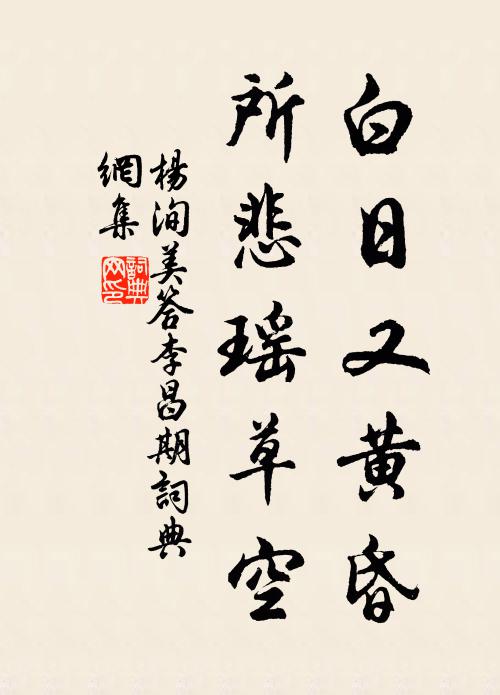 白日又黃昏
所悲瑶草空
楊洵美答李昌期詞典
網集
詞典網印